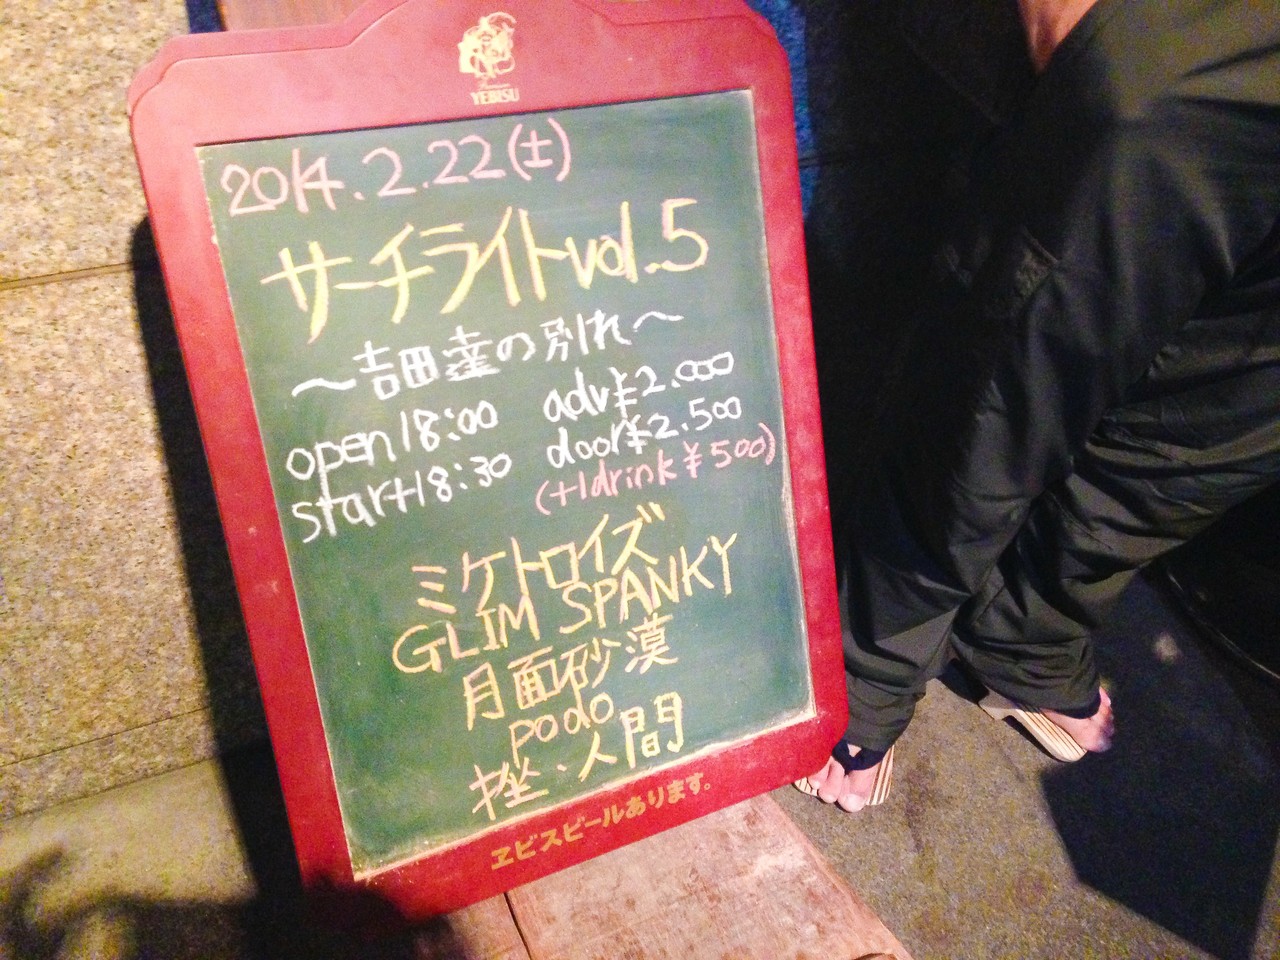 YEBISU
2014.2.22(土)
サーチライトvol.5
～吉田達の別れ～
open18:00 adv¥2.000
start18:30 door¥2.500
(+1drink¥500)
ミケトロイズ
GLIM SPANKY
月面砂漠
podo
挫・人間
ヱビスビールあります。